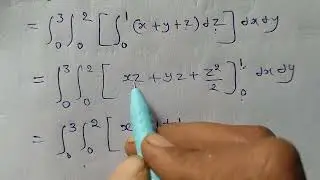 = ∫₀³ ∫₀² [ ∫₀¹ (x + y + z) dz ] dx dy
= ∫₀³ ∫₀² [ xz + yz + z²/2 ]₀¹ dx dy
= ∫₀³ ∫₀² [ x